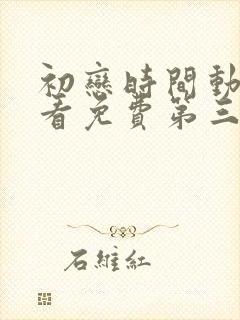 初戀時間動
看免費第三
石維紅